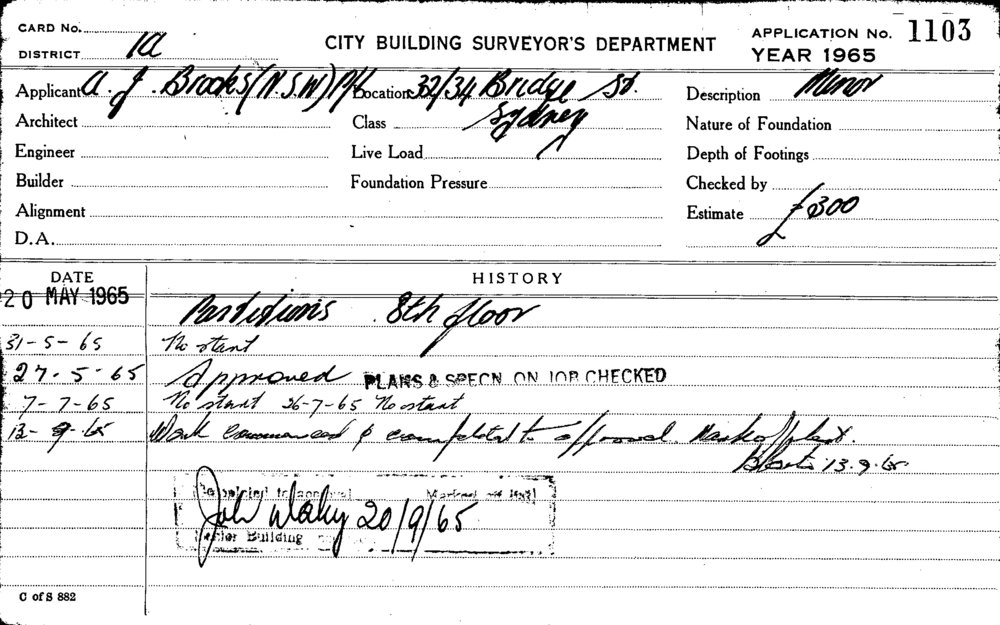 CARD No.
DISTRICT 1a
CITY BUILDING SURVEYOR'S DEPARTMENT
APPLICATION No. 1103
YEAR 1965
Applicant A. J. Brooks (N.S.W) P/L Location 32/34 Bridge St. Description Minor
Architect Class Sydney Nature of Foundation
Engineer Live Load Depth of Footings
Builder Foundation Pressure Checked by
Alignment Estimate £300
D.A.
DATE HISTORY
20 MAY 1965 Partitions 8th floor
31-5-65 No start
27.5.65 Approved PLANS & SPECN ON JOB CHECKED
7-7-65 No start 26-7-65 No start
13-9-65 Work commenced & completed to approval. Mark off plan.
13.9.65
to approval
20/9/65
Building
C of S 882